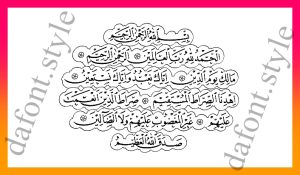 بِسْمِ اللَّهِ الرَّحْمَنِ الرَّحِيمِ
الْحَمْدُ لِلَّهِ رَبِّ الْعَالَمِينَ ۝ الرَّحْمَنِ الرَّحِيمِ
مَالِكِ يَوْمِ الدِّينِ ۝ إِيَّاكَ نَعْبُدُ وَإِيَّاكَ نَسْتَعِينُ
اهْدِنَا الصِّرَاطَ الْمُسْتَقِيمَ ۝ صِرَاطَ الَّذِينَ أَنْعَمْتَ
عَلَيْهِمْ ۝ غَيْرِ الْمَغْضُوبِ عَلَيْهِمْ وَلَا الضَّالِّينَ
صَدَقَ اللَّهُ الْعَظِيمُ
dafont.style
dafont.style